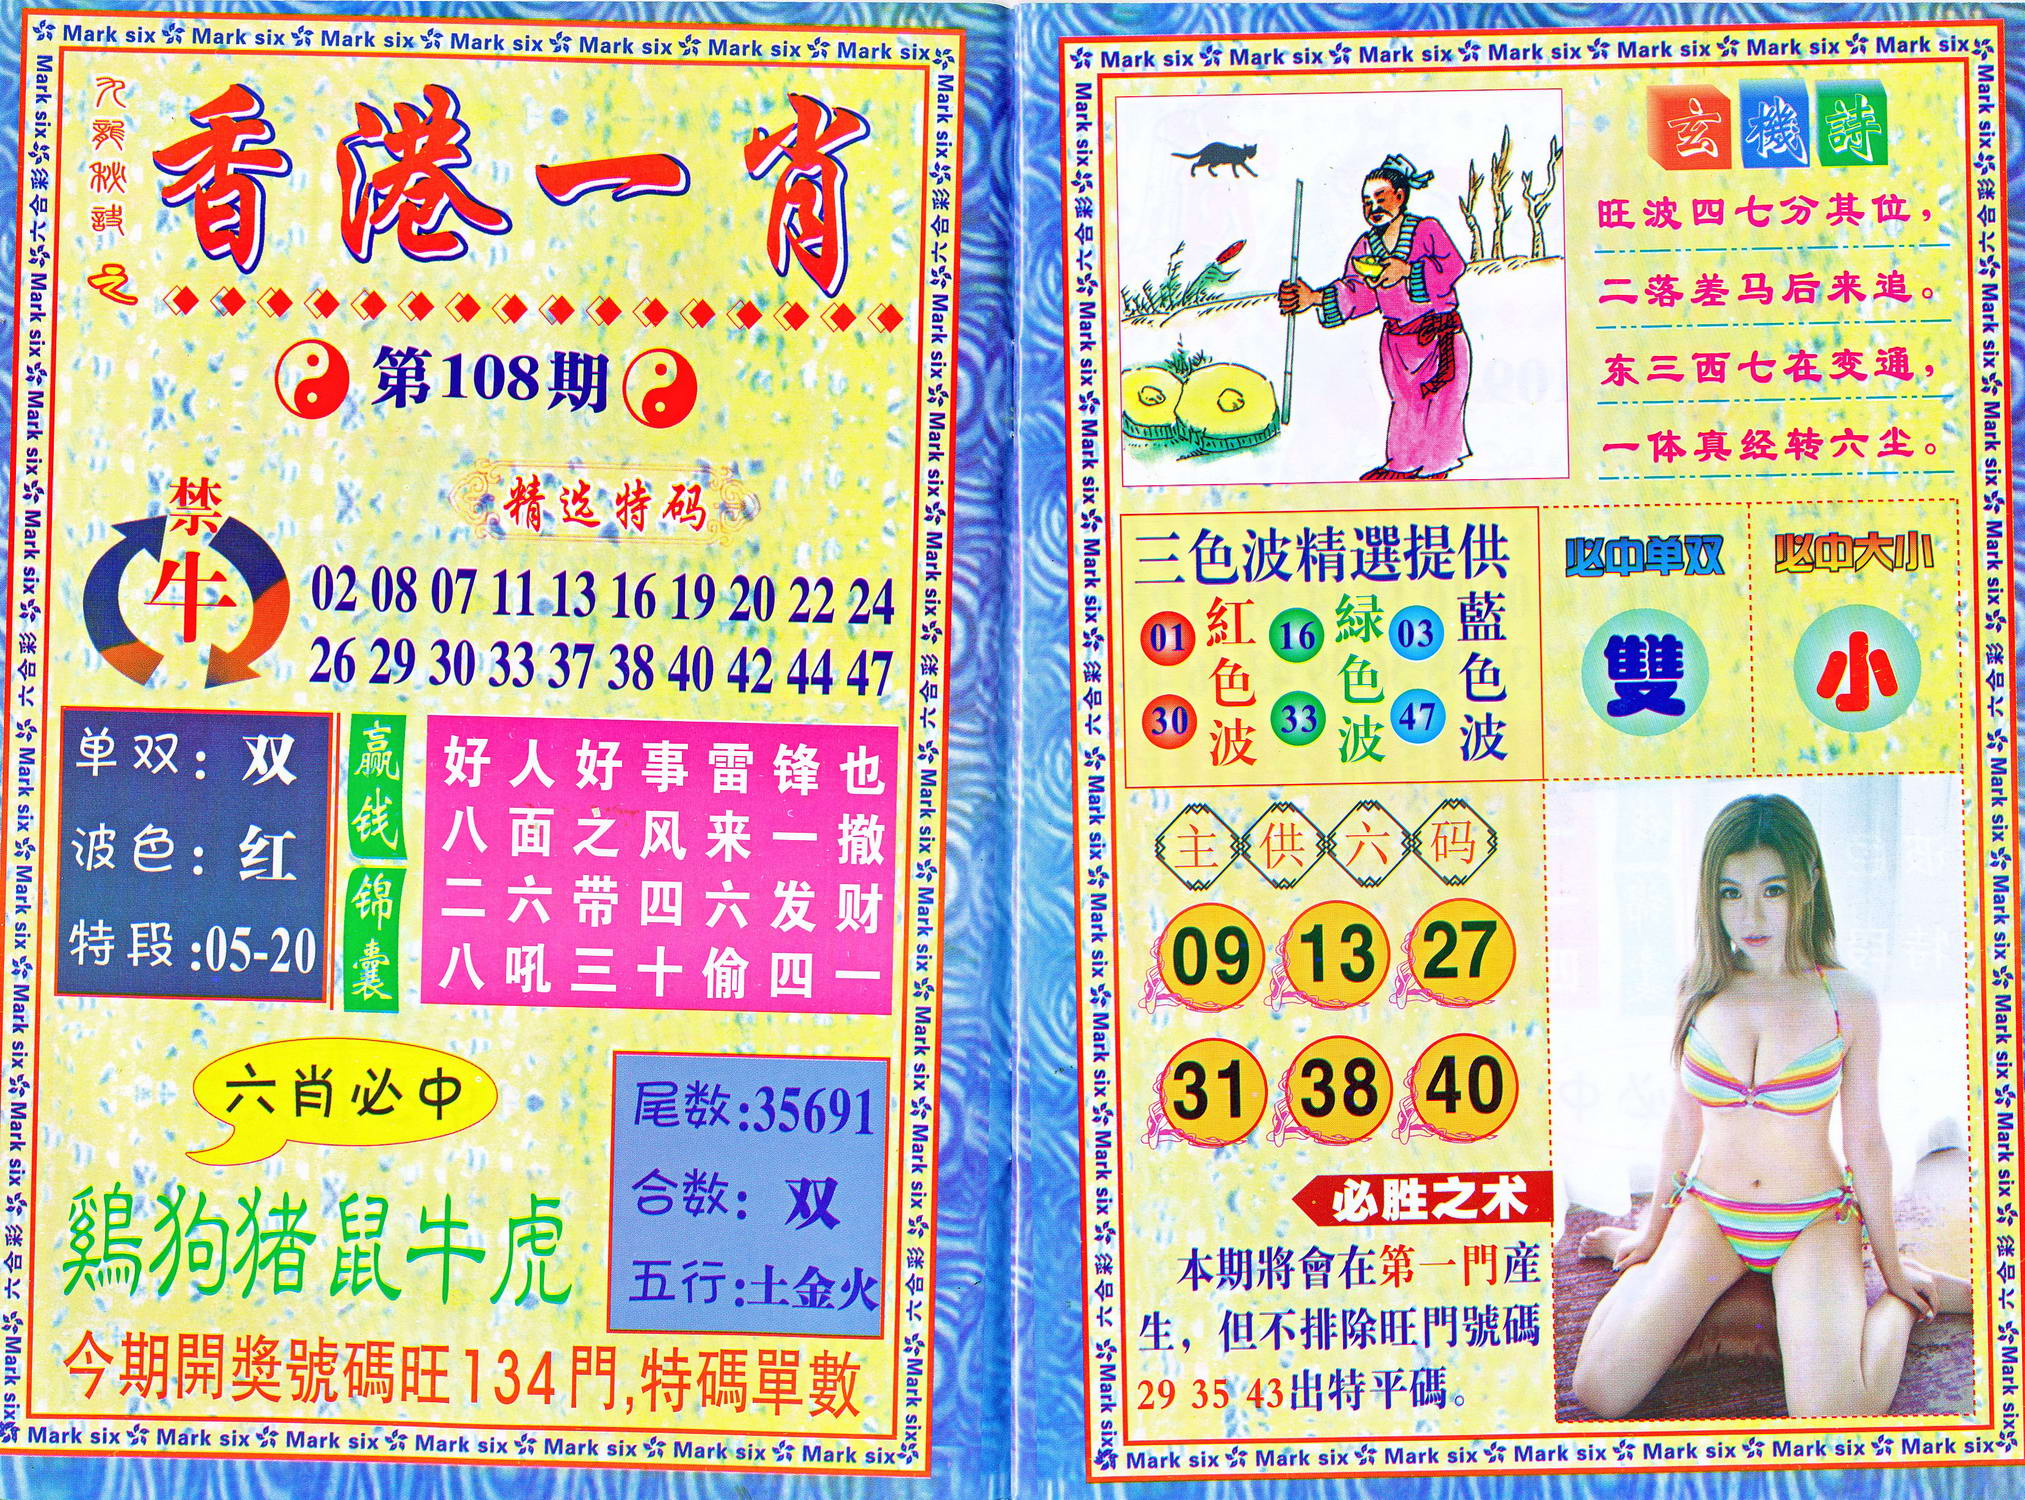 Mark six Mark six Mark six Mark six Mark six Mark six Mark six
九龍秋詩之
香港一肖
第108期
禁
牛
精选特码
02 08 07 11 13 16 19 20 22 24
26 29 30 33 37 38 40 42 44 47
单双：双
波色：红
特段:05-20
赢钱锦囊
好人好事雷锋也
八面之风来一撤
二六带四六发财
八吼三十偷四一
六肖必中
鷄狗猪鼠牛虎
尾数:35691
合数：双
五行:土金火
今期開獎號碼旺134門,特碼單數
Mark six Mark six Mark six Mark six Mark six Mark six Mark six
Mark six Mark six Mark six Mark six Mark six Mark six Mark six
玄機詩
旺波四七分其位，
二落差马后来追。
东三西七在变通，
一体真经转六尘。
三色波精選提供
01 30 紅色波
16 33 緑色波
03 47 藍色波
必中单双
雙
必中大小
小
主供六码
09 13 27
31 38 40
必胜之术
本期將會在第一門産
生，但不排除旺門號碼
29 35 43出特平碼。
Mark six Mark six Mark six Mark six Mark six Mark six Mark six